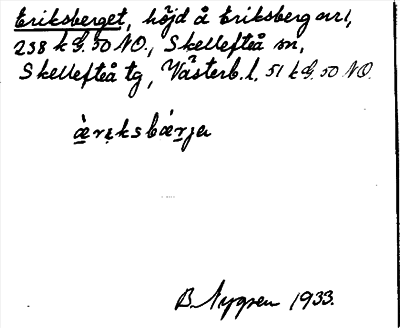 Eriksberget, höjd å Eriksberg nr1,
238 k G. 50 NO., Skellefteå sn,
Skellefteå tg, Västerb. l. 51 k G. 50 NO.
B. Nygren 1933.